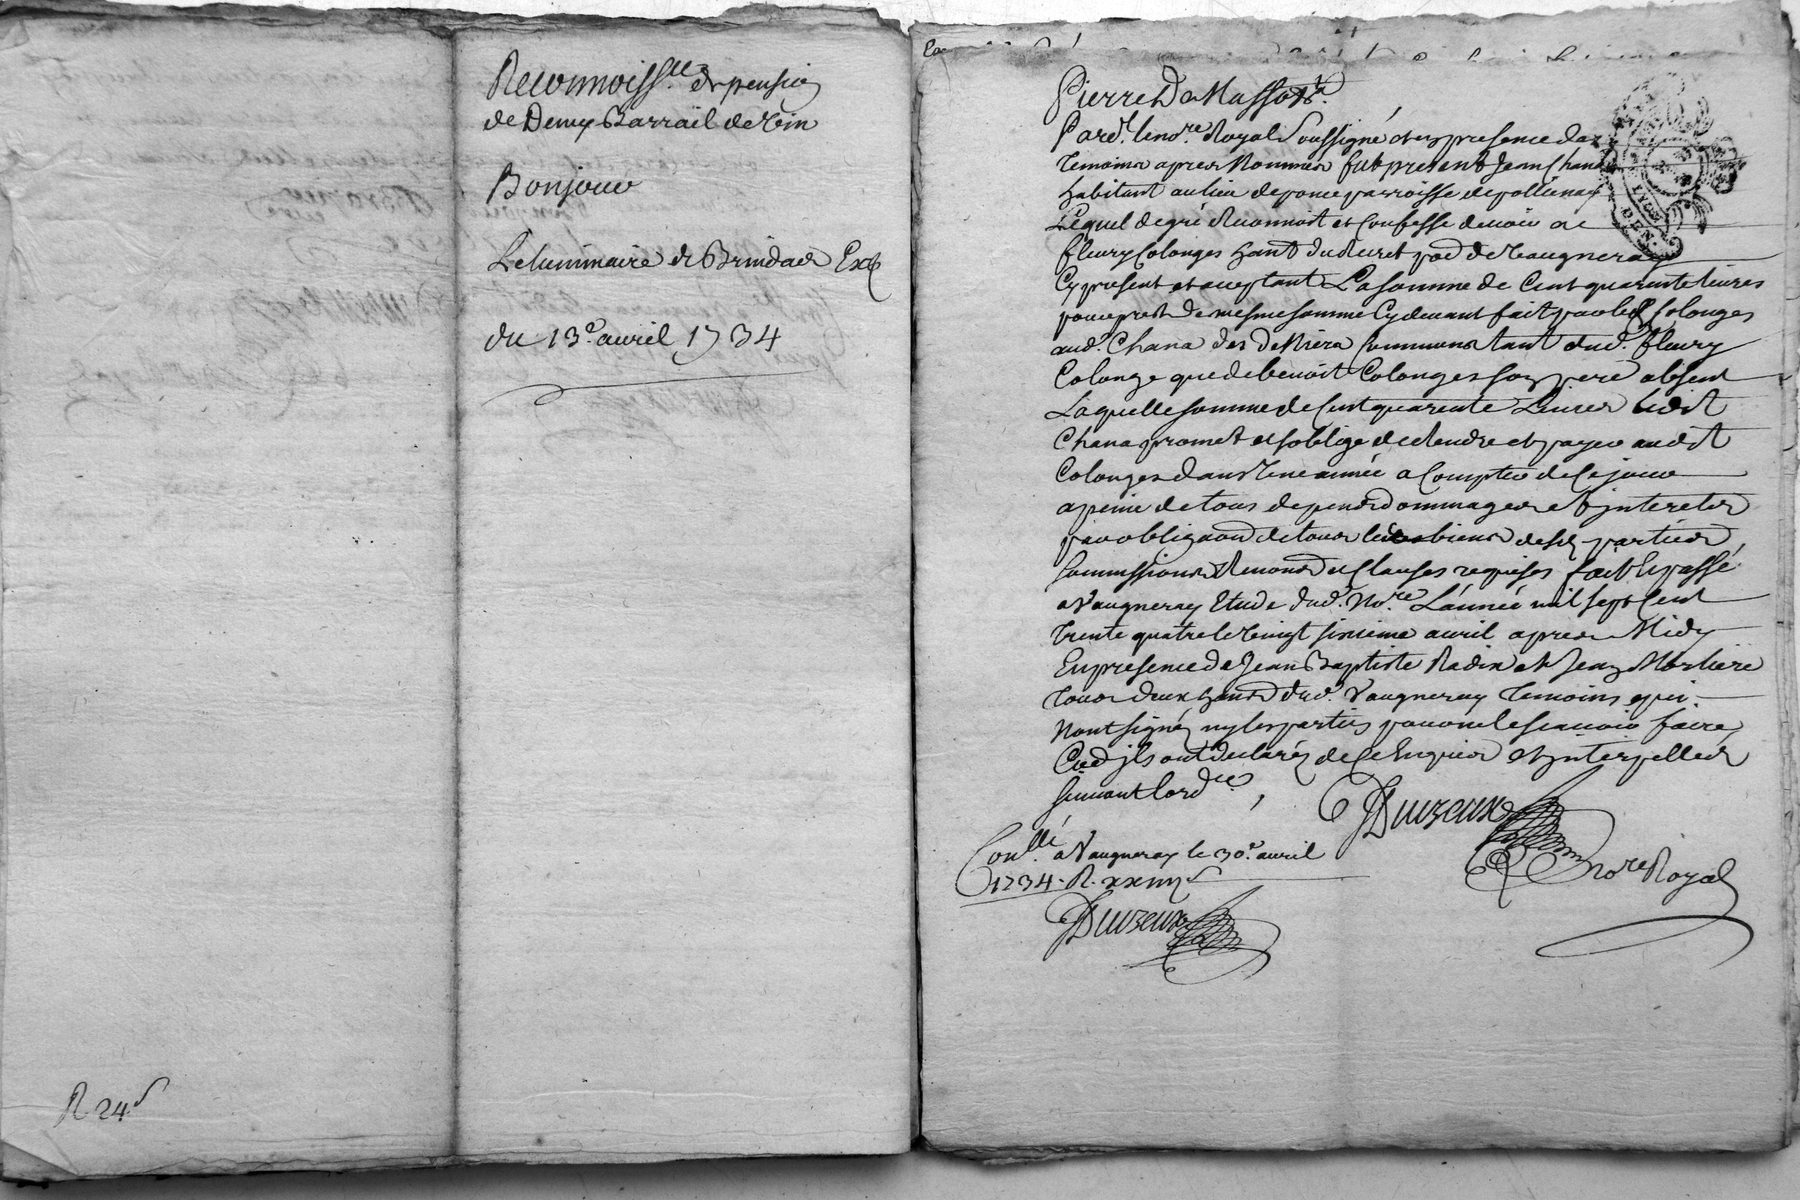 Reconnoiss.lle de pension
de Demy Barrail de vin
Bonjour
Le luminaire de Brindas Exte
du 13.e avril 1734
R 24 s
Pierre De Masso
Pard.t le no.re Royal Soussigné et en presence des
temoins apres Nommés fut present Jean Chana
habitant au lieu de parroisse de pollienay
Lequel de gré Reconnoit et Confesse devoir a
fleury Colonges hant du par de vaugneray
Cy present et acceptant La somme de Cent quarante livres
pour prest de mesme somme Cy devant fait par led Colonges
aud. Chana des deniers Communs tant dud. fleury
Colonge que de benoit Colonges son pere absent
Laquelle somme de Cent quarante Livres Ledit
Chana promet et soblige de Rendre et payer audit
Colonges dans Une année a Compter de Ce jour
a peine de tous depens dommages et jnterets
par obligaon de tous les biens desd parties
soummissions Renons et Clauses requises fait et passé
a Vaugneray Etude dud. No.re L'année mil sept Cent
trente quatre le Vingt sixieme avril apres Midy
En presence de Jean Baptiste Radix et Jean Morliere
tous deux hans dud. Vaugneray temoins qui
Nont signéz ny les parties pour ne le scavoir faire
ils ont declaréz de Ce Enquis et jnterpellés
suivant lord.ce
Duvzeux
no.re Royal
Con.llé a Vaugneray le 30.e avril
1734. R. xxiiij s
Duvzeux